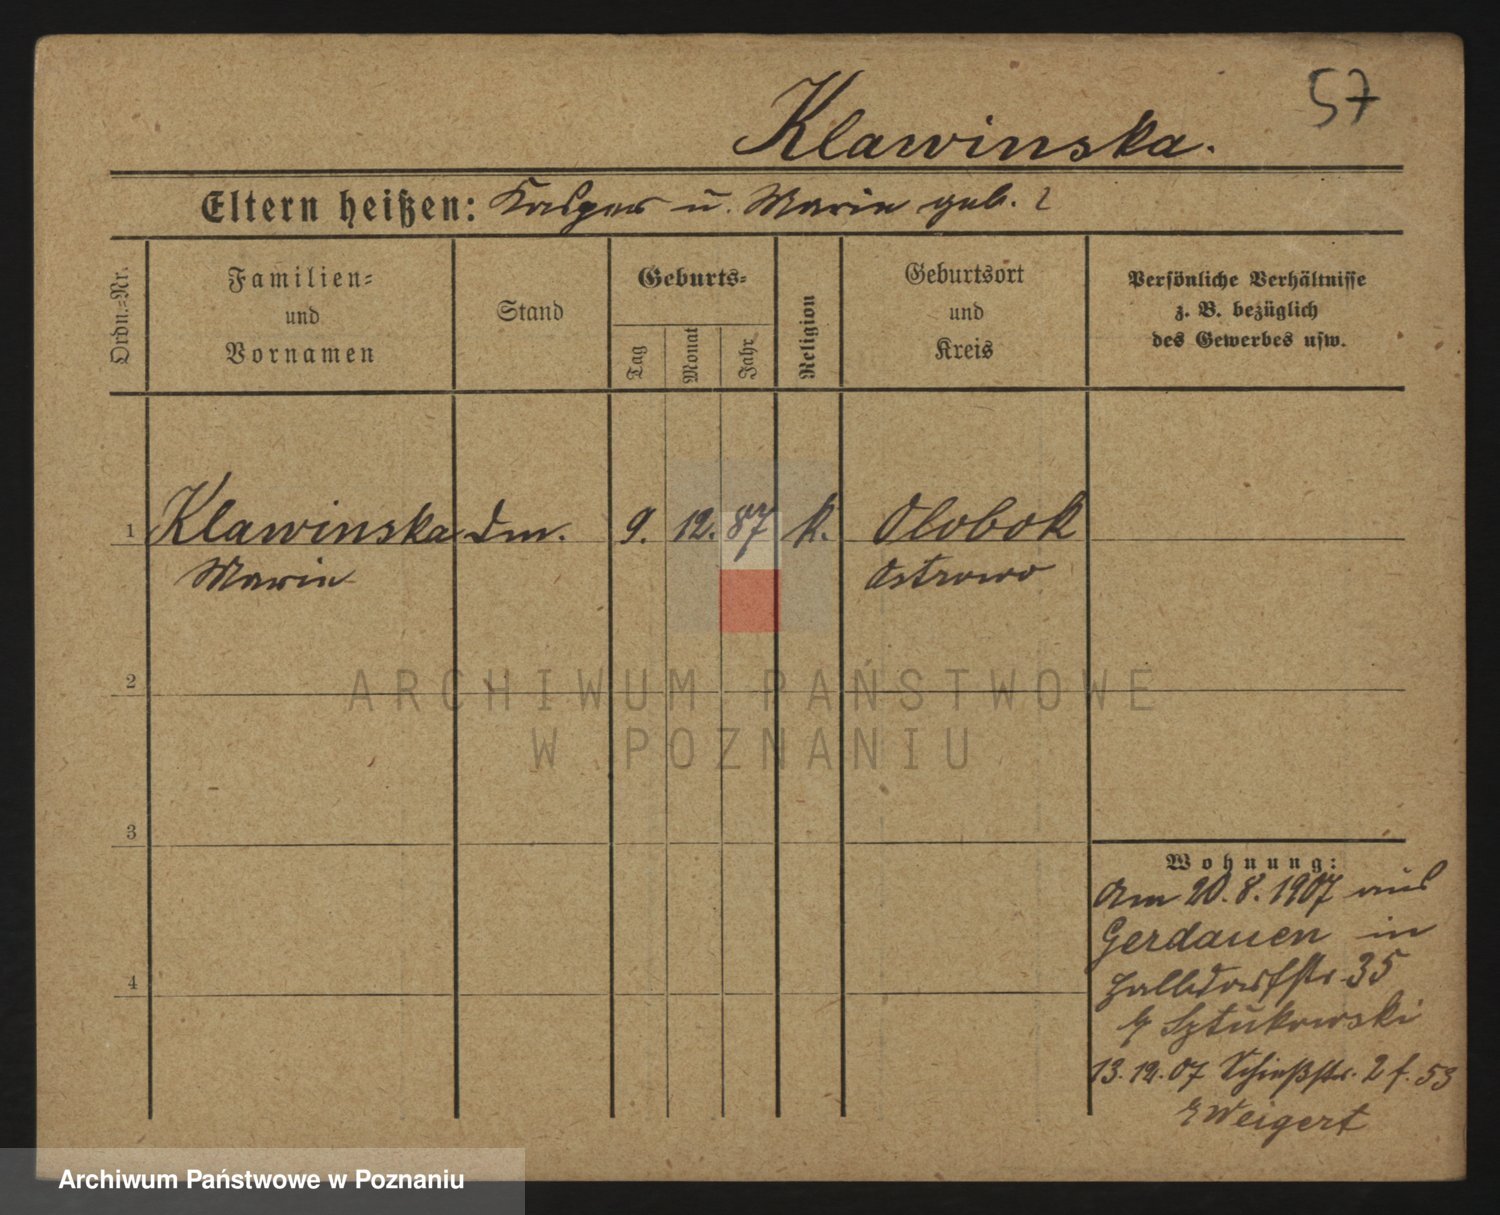 57
Klawinska.
Eltern heißen: Kasper u. Marie geb. ?
Ordn.-Nr.
Familien-
und
Vornamen
Stand
Geburts-
Tag
Monat
Jahr
Religion
Geburtsort
und
Kreis
Persönliche Verhältnisse
z. B. bezüglich
des Gewerbes usw.
1 Klawinska Dm. 9. 12. 87 k. Olobok
Marie Ostrowo
2
3
4
Wohnung:
Am 20.8.1907 aus
Gerdauen in
35
Sztukowski
13.12.07 Schießstr. 2 f. 53
Weigert
ARCHIWUM PAŃSTWOWE
W POZNANIU
Archiwum Państwowe w Poznaniu